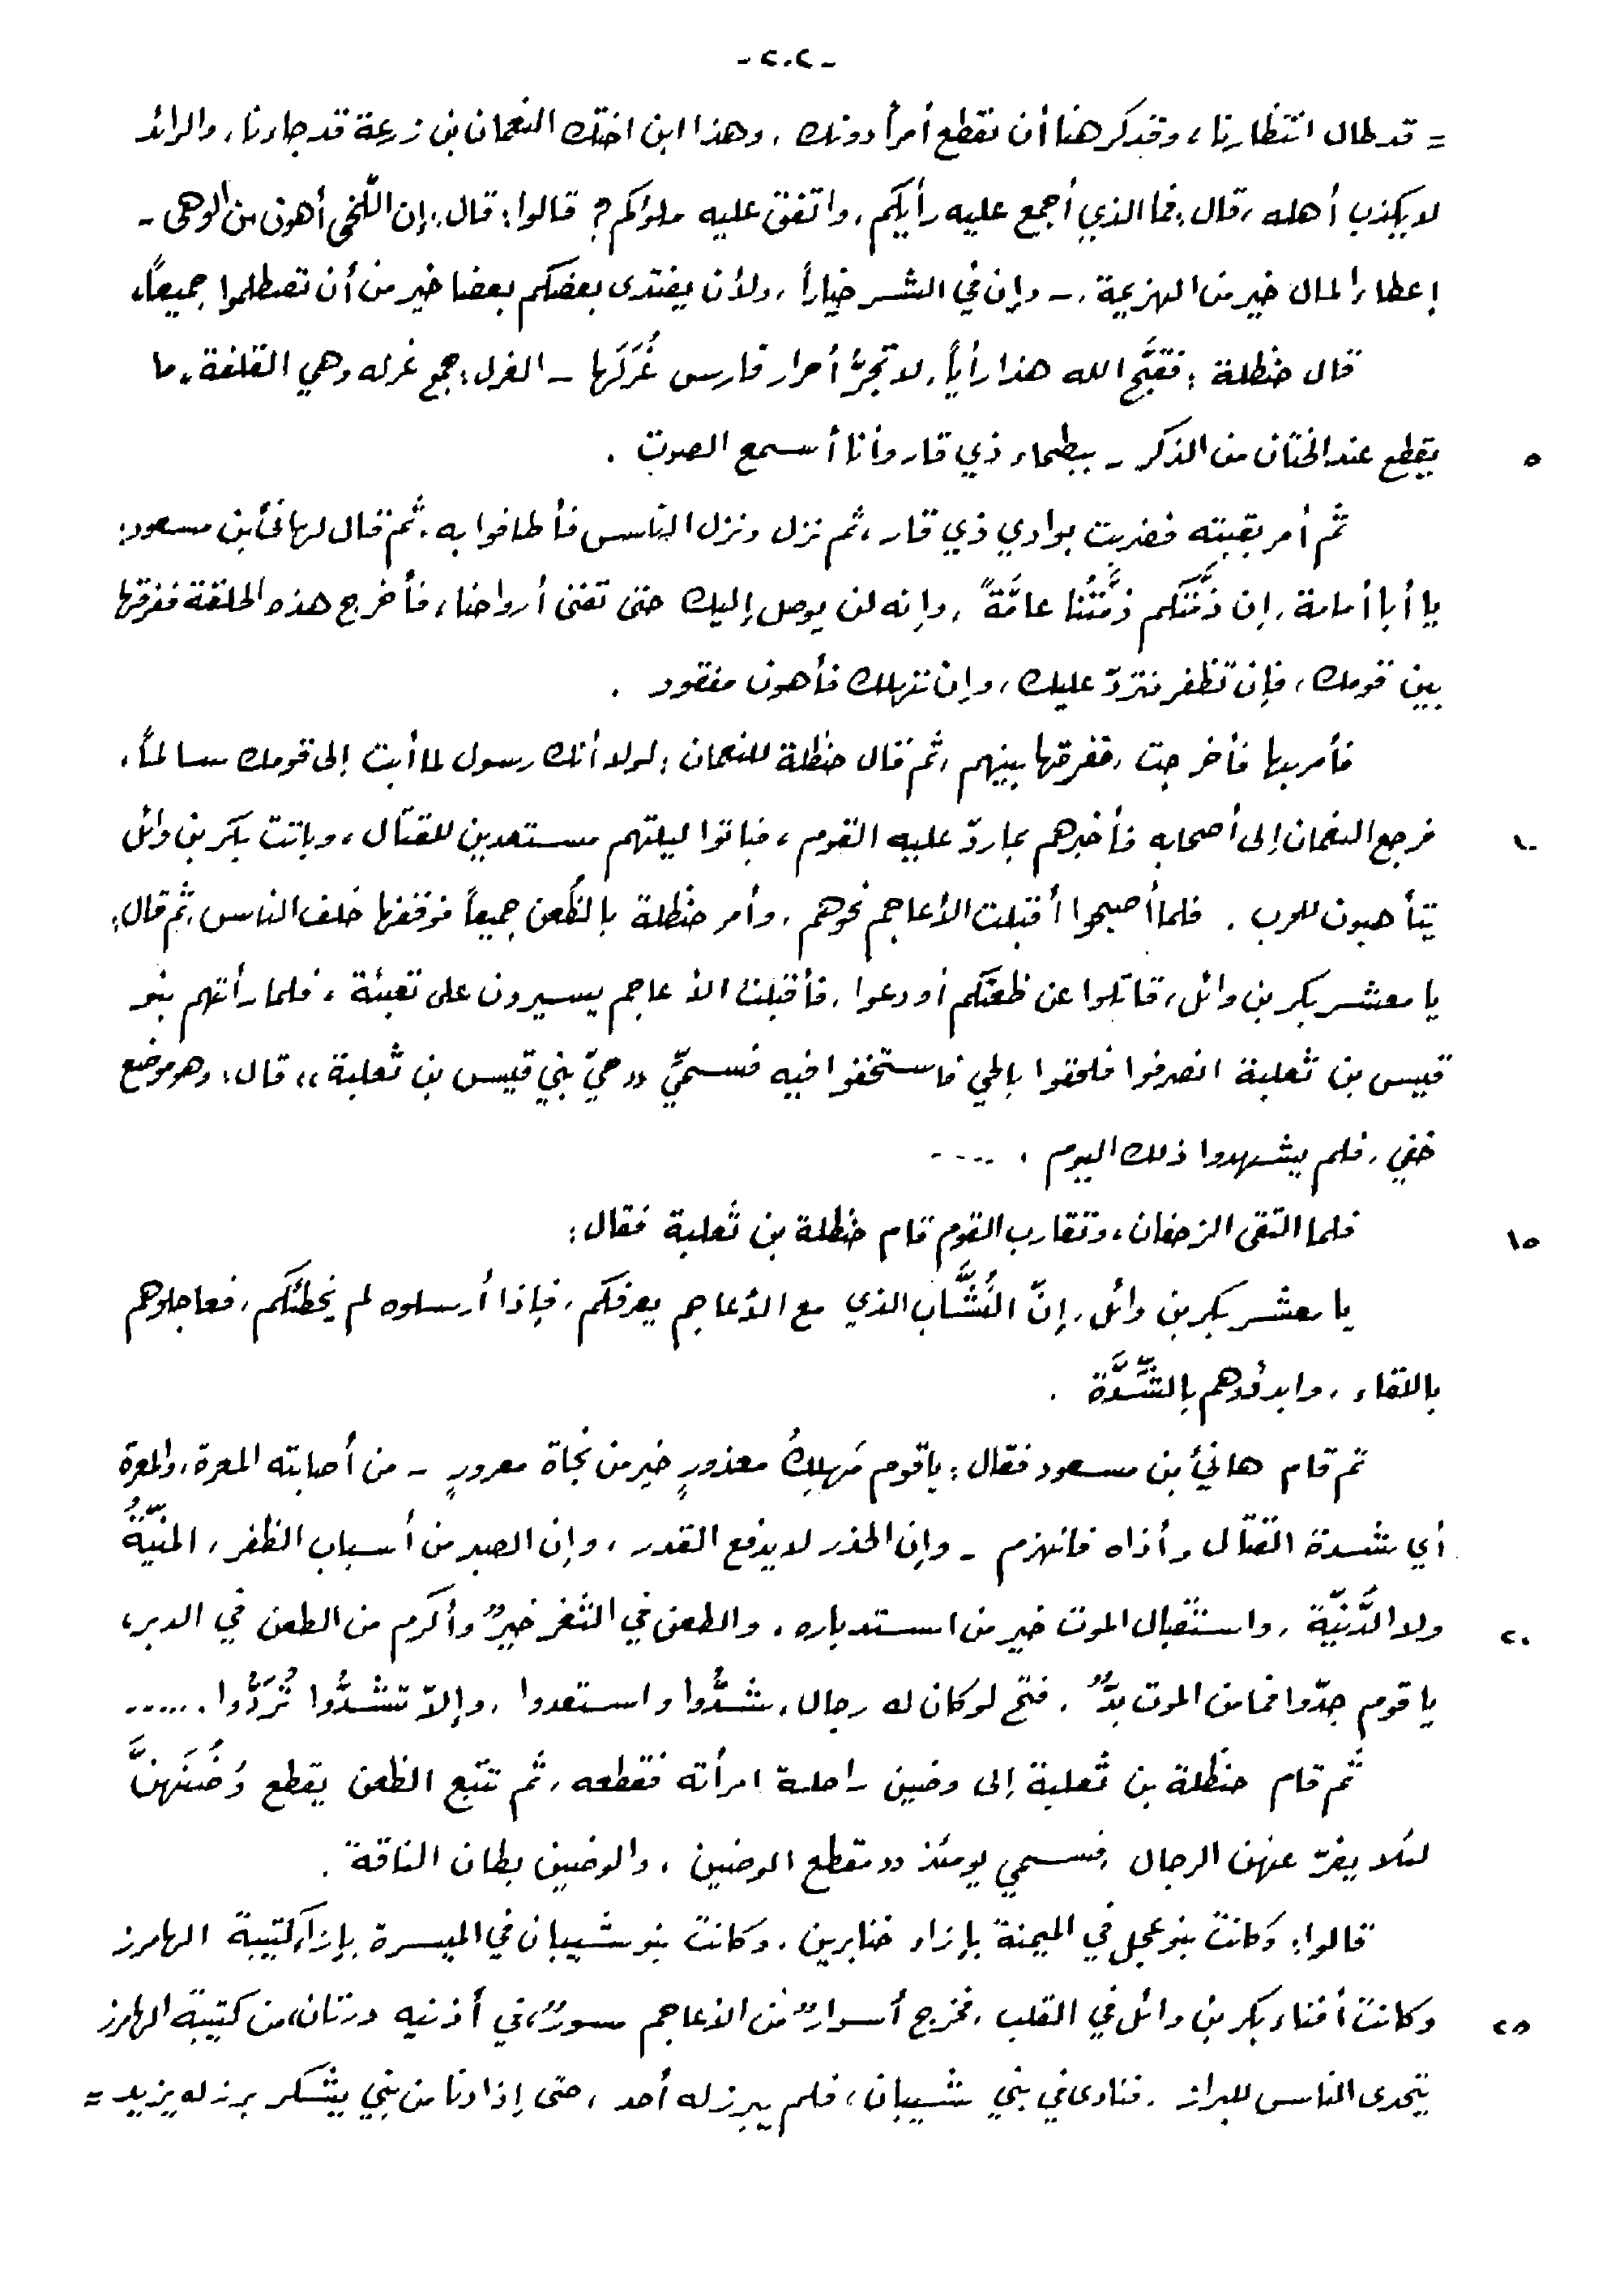 -٢٠٢-
= قد طال انتظارنا، وقد كرهنا أن نقطع أمراً دونك، وهذا ابن اختك النعمان بن زرعة قد جاءنا، والرائد
لا يكذب أهله، قال: فما الذي أجمع عليه رأيكم، واتفق عليه ملؤكم؟ قالوا: قال: إن اللّخى أهون من الوهى -
إعطاء المال خير من الهزيمة، - وإن في الشر خياراً، ولأن يفتدى بعضكم بعضا خير من أن تصطلموا جميعاً،
قال حنظلة: فقبَّح الله هذا رأياً، لا تجرُّ أحرار فارس غُرَلَها - الغرل: جمع غرله وهي القلفة، ما
٥ يقطع عند الختان من الذكر - ببطحاء ذي قار وأنا أسمع الصوت .
ثم أمر بقبته فضربت بوادي ذي قار، ثم نزل ونزل الناس فأطافوا به، ثم قال لهانئ بن مسعود:
يا أبا أمامة، إن ذمَّتَكم ذمَّتُنا عامَّةً، وإنه لن يوصل إليك حتى تفنى أرواحنا، فأخرج هذه الحلقة ففرقها
بين قومك، فإن تظفر فتردّ عليك، وإن تهلك فأهون مفقود .
فأمر بها فأخرجت، ففرقها بينهم، ثم قال حنظلة للنعمان: لولا أنك رسول لما أبت إلى قومك سالماً،
١٠ فرجع النعمان إلى أصحابه فأخبرهم بما ردّ عليه القوم، فباتوا ليلتهم مستعدين للقتال، وباتت بكر بن وائل
يتأهبون للحرب . فلما أصبحوا أقبلت الأعاجم نحوهم، وأمر حنظلة بالظُّعن جميعاً فوقفها خلف الناس، ثم قال:
يا معشر بكر بن وائل، قاتلوا عن ظعنكم أو دعوا، فأقبلت الأعاجم يسيرون على تعبئة، فلما رأتهم بنو
قيس بن ثعلبة انصرفوا فلحقوا بالحي فاستخفوا فيه فسمّي «حيّ بني قيس بن ثعلبة» قال: وهو موضع
خفي، فلم يشهدوا ذلك اليوم . .....
١٥ فلما التقى الزحفان، وتقارب القوم قام حنظلة بن ثعلبة فقال:
يا معشر بكر بن وائل، إنّ النُّشَّاب الذي مع الأعاجم يعرفكم، فإذا أرسلوه لم يخطئكم، فعاجلوهم
باللقاء، وابدؤدهم بالشَّدَّة .
ثم قام هانئ بن مسعود فقال: يا قوم مَهلِكُ معذورٍ خير من نجاة معرورٍ - من أصابته المعرة، والمعرة
أي شدة القتال وأذاه فانهزم - وإن الحذر لا يدفع القدر، وإن الصبر من أسباب الظفر، المنيّةُ
٢٠ ولا الدَّنيّة، واستقبال الموت خير من استدباره، والطعن في الثغر خيرٌ وأكرم من الطعن في الدبر،
يا قوم جدّوا فما من الموت بدٌّ، فتح لو كان له رجال، شُدُّوا واستعدوا، وإلاّ تشدُّوا تُرَدُّوا، .....
ثم قام حنظلة بن ثعلبة إلى وضين راحلة امرأته فقطعه، ثم تتبع الظعن يقطع وُضُنَهنَّ
لئلا يفرّ عنهن الرجال، فسمي يومئذ «مقطع الوضين، والوضين بطان الناقة .
قالوا: وكانت بنو عجل في الميمنة بإزاء خنابرين، وكانت بنو شيبان في الميسرة بإزاء كتيبة الهامرز
٢٥ وكانت أفناء بكر بن وائل في القلب، فخرج أسوارٌ من الأعاجم مسوّرٌ، في أذنيه درتان، من كتيبة الهامرز
يتحدى الناس للبراز، فنادى في بني شيبان، فلم يبرز له أحد، حتى إذا دنا من بني يشكر برز له يزيد =